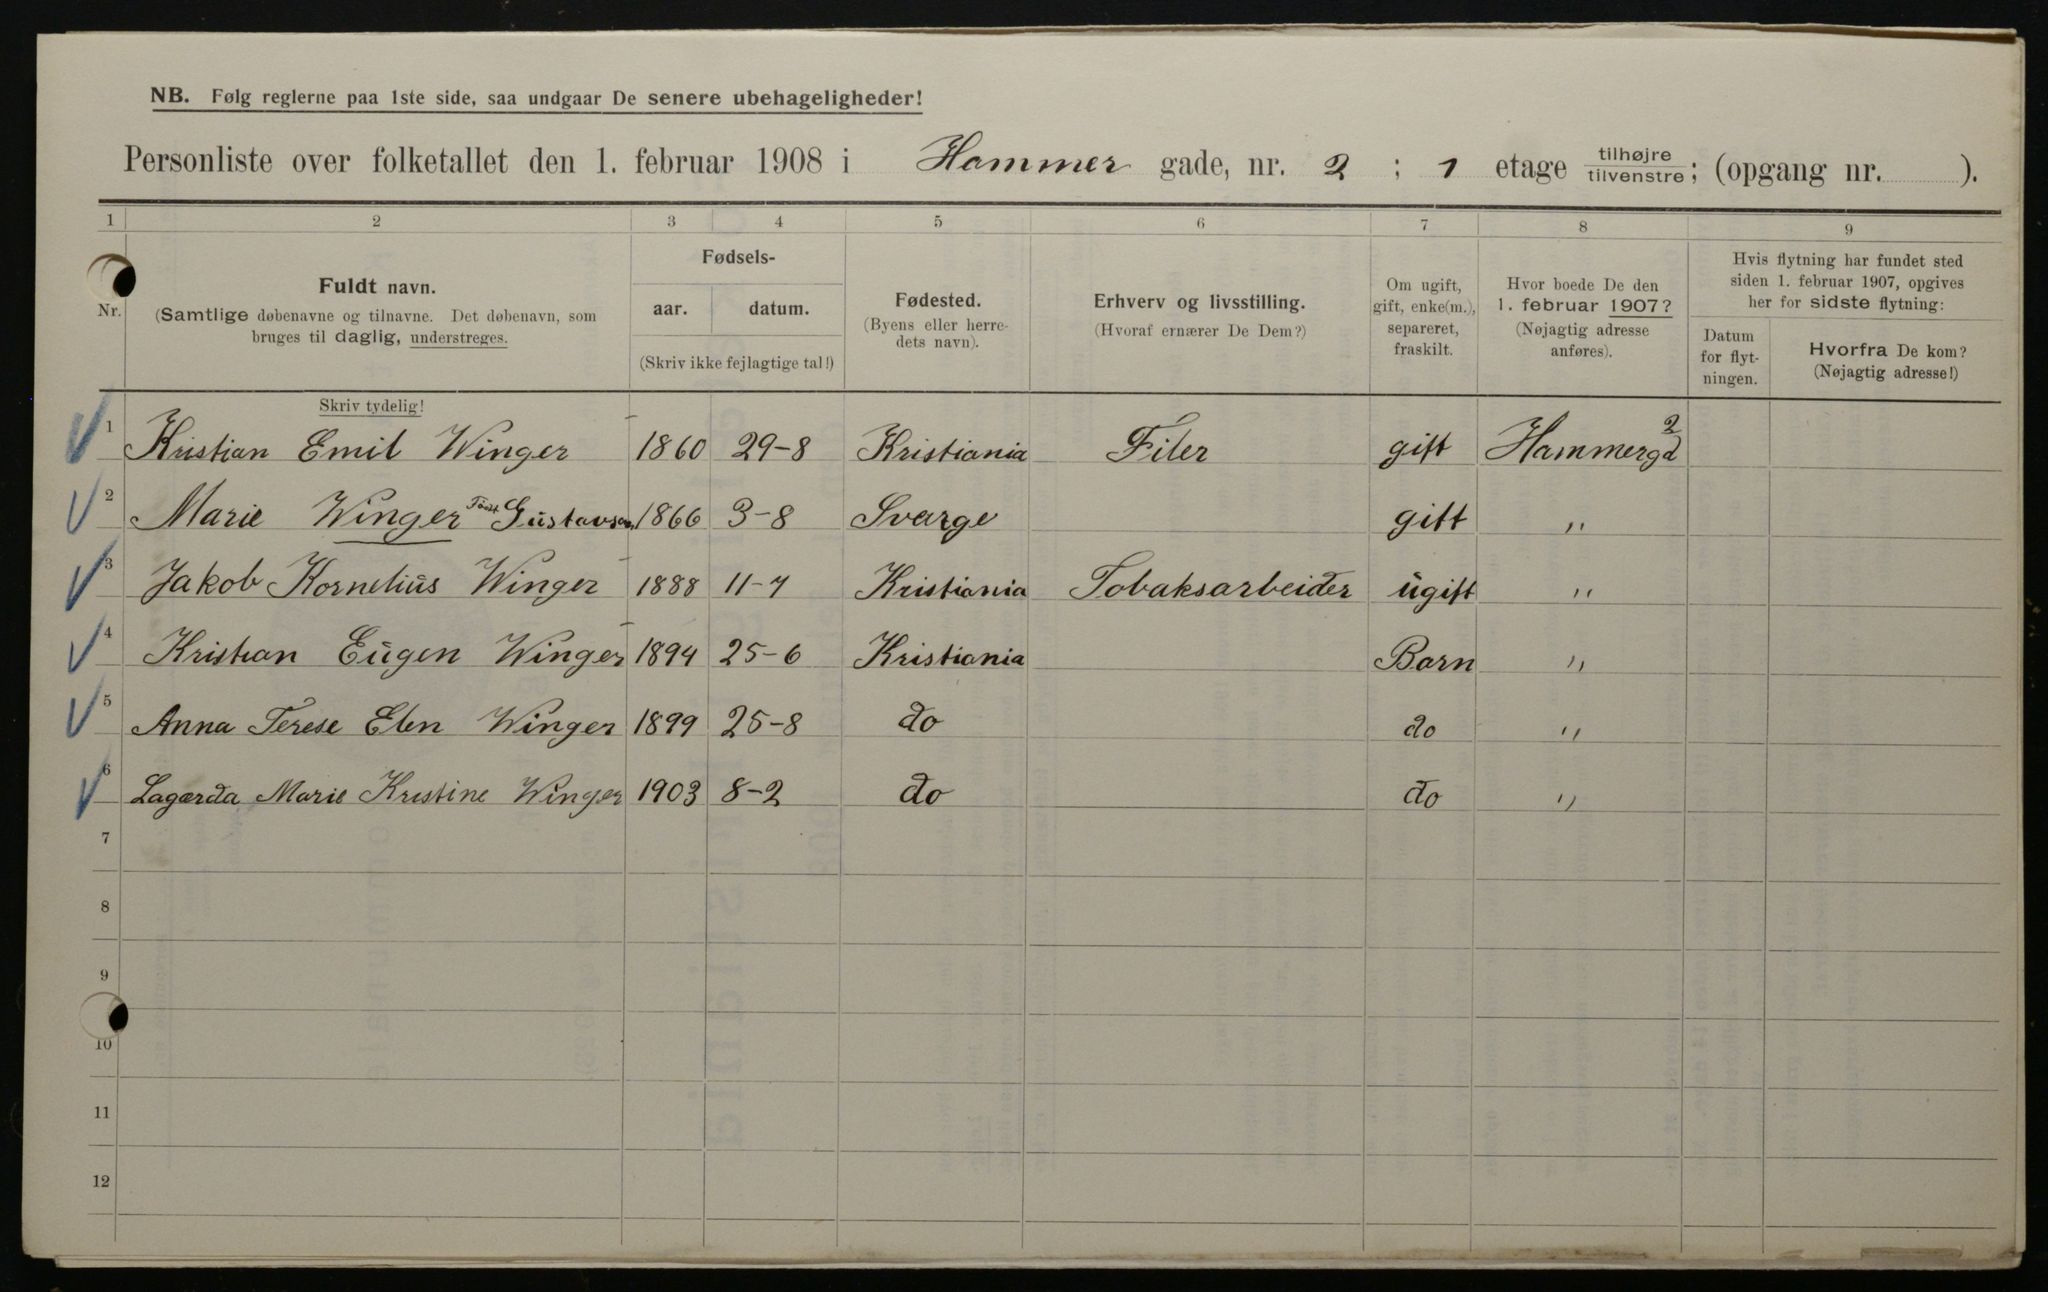 NB. Følg reglerne paa 1ste side, saa undgaar De senere ubehageligheder!
Personliste over folketallet den 1. februar 1908 i Hammer gade, nr. 2 ; 1 etage tilhøjre tilvenstre; (opgang nr. ).
1 2 3 4 5 6 7 8 9
Nr.
Fuldt navn.
(Samtlige døbenavne og tilnavne. Det døbenavn, som
bruges til daglig, understreges.
Skriv tydelig!
Fødsels-
aar. datum.
(Skriv ikke fejlagtige tal!)
Fødested.
(Byens eller herre-
dets navn).
Erhverv og livsstilling.
(Hvoraf ernærer De Dem?)
Om ugift,
gift, enke(m.),
separeret,
fraskilt.
Hvor boede De den
1. februar 1907?
(Nøjagtig adresse
anføres).
Hvis flytning har fundet sted
siden 1. februar 1907, opgives
her for sidste flytning:
Datum
for flyt-
ningen.
Hvorfra De kom?
(Nøjagtig adresse!)
1 Kristian Emil Winger 1860 29-8 Kristiania Filer gift Hammergd 2
2 Marie Winger Født Gustavsen 1866 3-8 Sverge gift "
3 Jakob Kornelius Winger 1888 11-7 Kristiania Tobaksarbeider ugift "
4 Kristian Eugen Winger 1894 25-6 Kristiania Barn "
5 Anna Terese Elen Winger 1899 25-8 do do "
6 Lagærda Marie Kristine Winger 1903 8-2 do do "
7
8
9
10
11
12